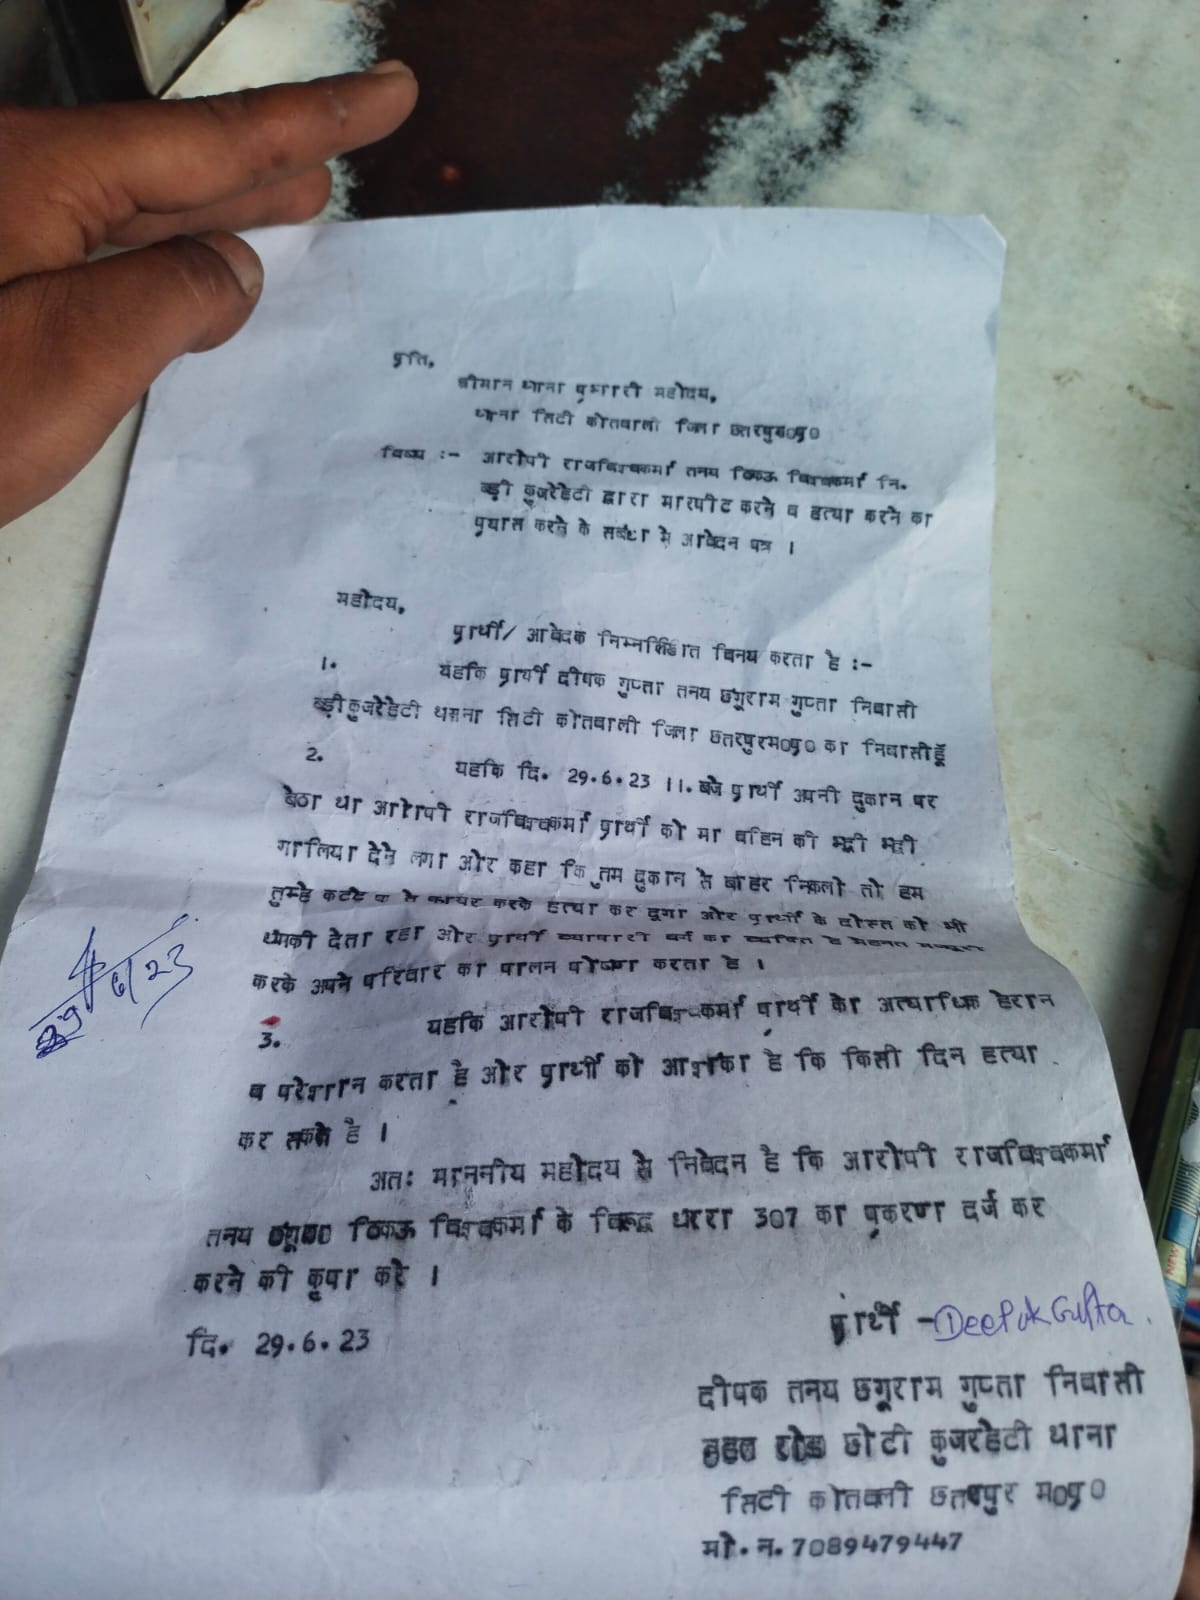 प्रति,
श्रीमान थाना प्रभारी महोदय,
थाना सिटी कोतवाली जिला छतरपुरम0प्र0
विषय :- आरोपी राजविश्वकर्मा तनय ठिकऊ विश्वकर्मा नि.
बड़ी कुजरेहेटी द्वारा मारपीट करने व हत्या करने का
प्रयास करने के सबंध मे आवेदन पत्र ।
महोदय,
प्रार्थी/ आवेदक निम्नलिखित विनय करता है :-
1. यहकि प्रार्थी दीपक गुप्ता तनय छगूराम गुप्ता निवासी
बड़ीकुजरेहेटी थाना सिटी कोतवाली जिला छतरपुरम0प्र0 का निवासीहूँ
2. यहकि दि. 29.6.23 11. बजे प्रार्थी अपनी दुकान पर
बेठा था आरोपी राजविश्वकर्मा प्रार्थी को मा बहिन की भद्दी भद्दी
गालिया देने लगा ओर कहा कि तुम दुकान से बाहर निकलो तो हम
तुम्हे कटटे से फायर करके हत्या कर दूगा ओर प्रार्थी के दोस्त को भी
धमकी देता रहा ओर प्रार्थी व्यापारी वर्ग का व्यक्ति है मेहनत मजदूरी
करके अपने परिवार का पालन पोषण करता है ।
3. यहकि आरोपी राजविश्वकर्मा प्रार्थी को अत्याधिक हेरान
व परेशान करता है ओर प्रार्थी को आशंका है कि किसी दिन हत्या
कर सकते है ।
अतः माननीय महोदय से निवेदन है कि आरोपी राजविश्वकर्मा
तनय ठिकऊ विश्वकर्मा के विरूद्ध धारा 307 का प्रकरण दर्ज कर
करने की कृपा करे ।
दि. 29.6.23
प्रार्थी - Deepak Gupta
दीपक तनय छगूराम गुप्ता निवासी
रोड छोटी कुजरहेटी थाना
सिटी कोतवली छतरपुर म0प्र0
मो. न. 7089479447
29/6/23